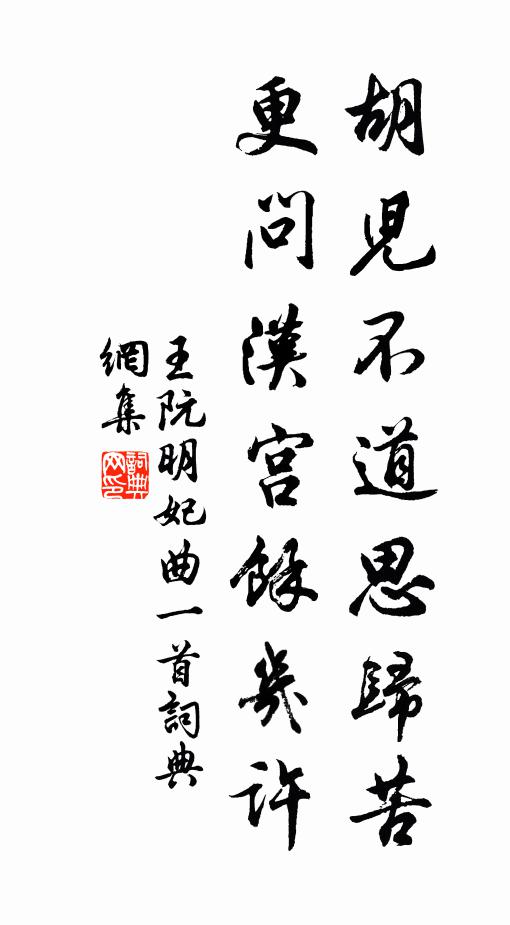 胡児不道思歸苦
更問漢宮餘幾許
王阮明妃曲一首詞典
網集
詞典
网印